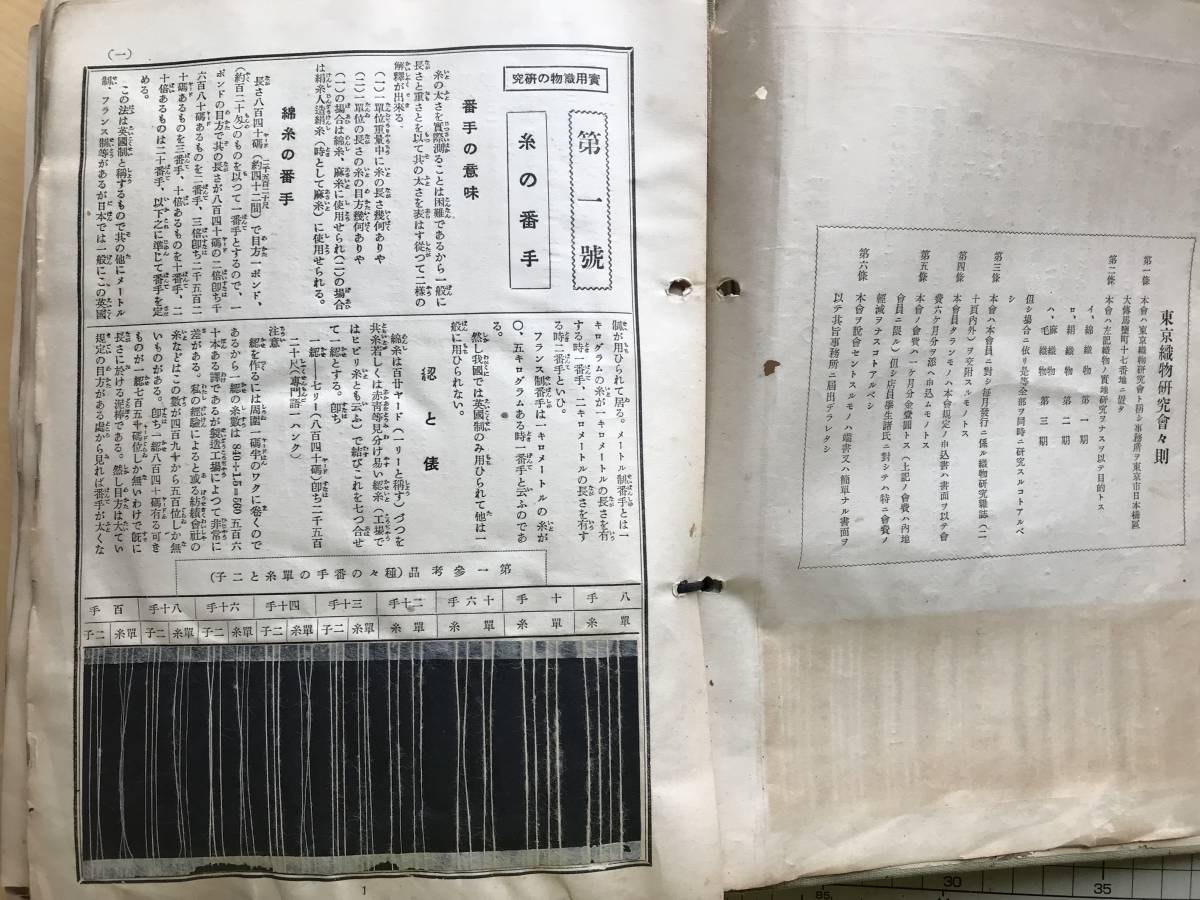 東京織物硏究會々則
第一條　本會ハ東京織物硏究會ト稱シ事務所ヲ東京市日本橋區
大傳馬鹽町十七番地ニ置ク
第二條　本會ハ左記織物ノ實地硏究ヲナスヲ以テ目的トス
イ、綿織物　第一期
ロ、絹織物　第二期
ハ、麻織物
毛織物　第三期
但シ場合ニ依リ是等全部ヲ同時ニ硏究スルコトアルベ
シ
第三條　本會ハ本會員ニ對シ每月發行ニ係ル織物硏究雜誌（二
十頁內外）ヲ交附スルモノトス
第四條　本會員タランモノハ本會規定ノ申込書ハ書面ヲ以テ會
費六ケ月分ヲ添ヘ申込ムモノトス
第五條　本會ノ會費ハ一ケ月分金壹圓トス（上記ノ會費ハ內地
會員ニ限ル）但シ店員學生諸氏ニ對シテハ特ニ會費ノ
輕減ヲナスコトアルベシ
第六條　本會ヲ說會セントスルモノハ端書又ハ簡單ナル書面ヲ
以テ其旨事務所ニ屆出デラレタシ
（一）
實用織物の硏究
第一號
糸の番手
番手の意味
糸の太さを實際測ることは困難であるから一般に
長さと重さとを以て其の太さを表はす從つて二樣の
解釋が出來る。
（一）一單位重量中に糸の長さ幾何ありや
（二）一單位の長さの糸の目方幾何ありや
（一）の場合は綿糸、麻糸に使用せられ（二）の場合
は絹糸人造絹糸（時として麻糸）に使用せられる。
綿糸の番手
長さ八百四十碼（約四十二間）で目方一ポンド、
（約百二十匁）のものを以つて一番手とするので、一
ポンドの目方で其の長さが八百四十碼の二倍卽ち千
六百八十碼あるものを二番手、三倍卽ち二千五百二
十碼あるものを三番手、十倍あるものを十番手、二
十倍あるものは二十番手、以下之に準じて番手を定
める。
この法は英國制と稱するもので其の他にメートル
制、フランス制等があるが日本では一般にこの英國
制が用ひられて居る。メートル制番手とは一
キログラムの糸が一キロメートルの長さを有
する時一番手、二キロメートルの長さを有す
る時二番手といひ。
フランス制番手は一キロメートルの糸が
〇・五キログラムある時一番手と云ふのであ
る。
然し我國では英國制のみ用ひられて他は一
般に用ひられない。
綛と俵
綿糸は百廿ヤード（一リーと稱す）づつを
共糸若しくは赤靑等見分け易い綛糸（工場で
はヒビリ糸とも云ふ）で結びこれを七つ合せ
て一綛とする。卽ち
一綛――七リー（八百四十碼）卽ち二千五百
二十尺（專門語ハンク）
注意
綛を作るには周圍一碼半のワクに卷くので
あるから一綛の糸數は 840÷1.5＝560 五百六
十本ある譯であるが製造工場によつて非常に
差がある。私の經驗によると或る紡績會社の
糸などはこの數が四百九十から五百位しか無
いものがある。卽ち一綛八百四十碼有る可き
ものが一綛七百五十碼位しか無いわけで旣に
長さに於ける泥棒である。然し目方は大てい
規定の目方がある處から見れば番手が太くな
第一參考品（種々の番手の單糸と二子）
八手　十手　十六手　二十手　三十手　四十手　六十手　八十手　百手
單糸　單糸　單糸　單糸　單糸　二子　單糸　二子　單糸　二子　單糸　二子　單糸　二子
1
30
35